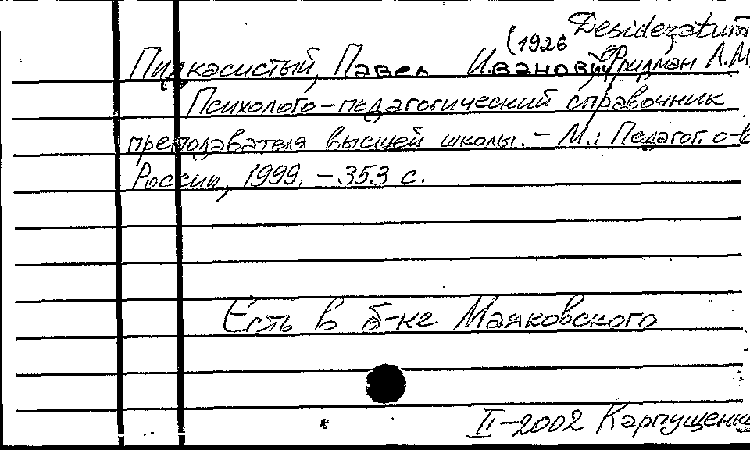 Desideratum
(1926
Пидкасистый, Павел Иванович, Фридман Л.М.
Психолого-педагогический справочник
преподавателя высшей школы. - М.: Педагог. о-в
России, 1999. - 353 с.
Есть в б-ке Маяковского
II-2002 Карпущенко